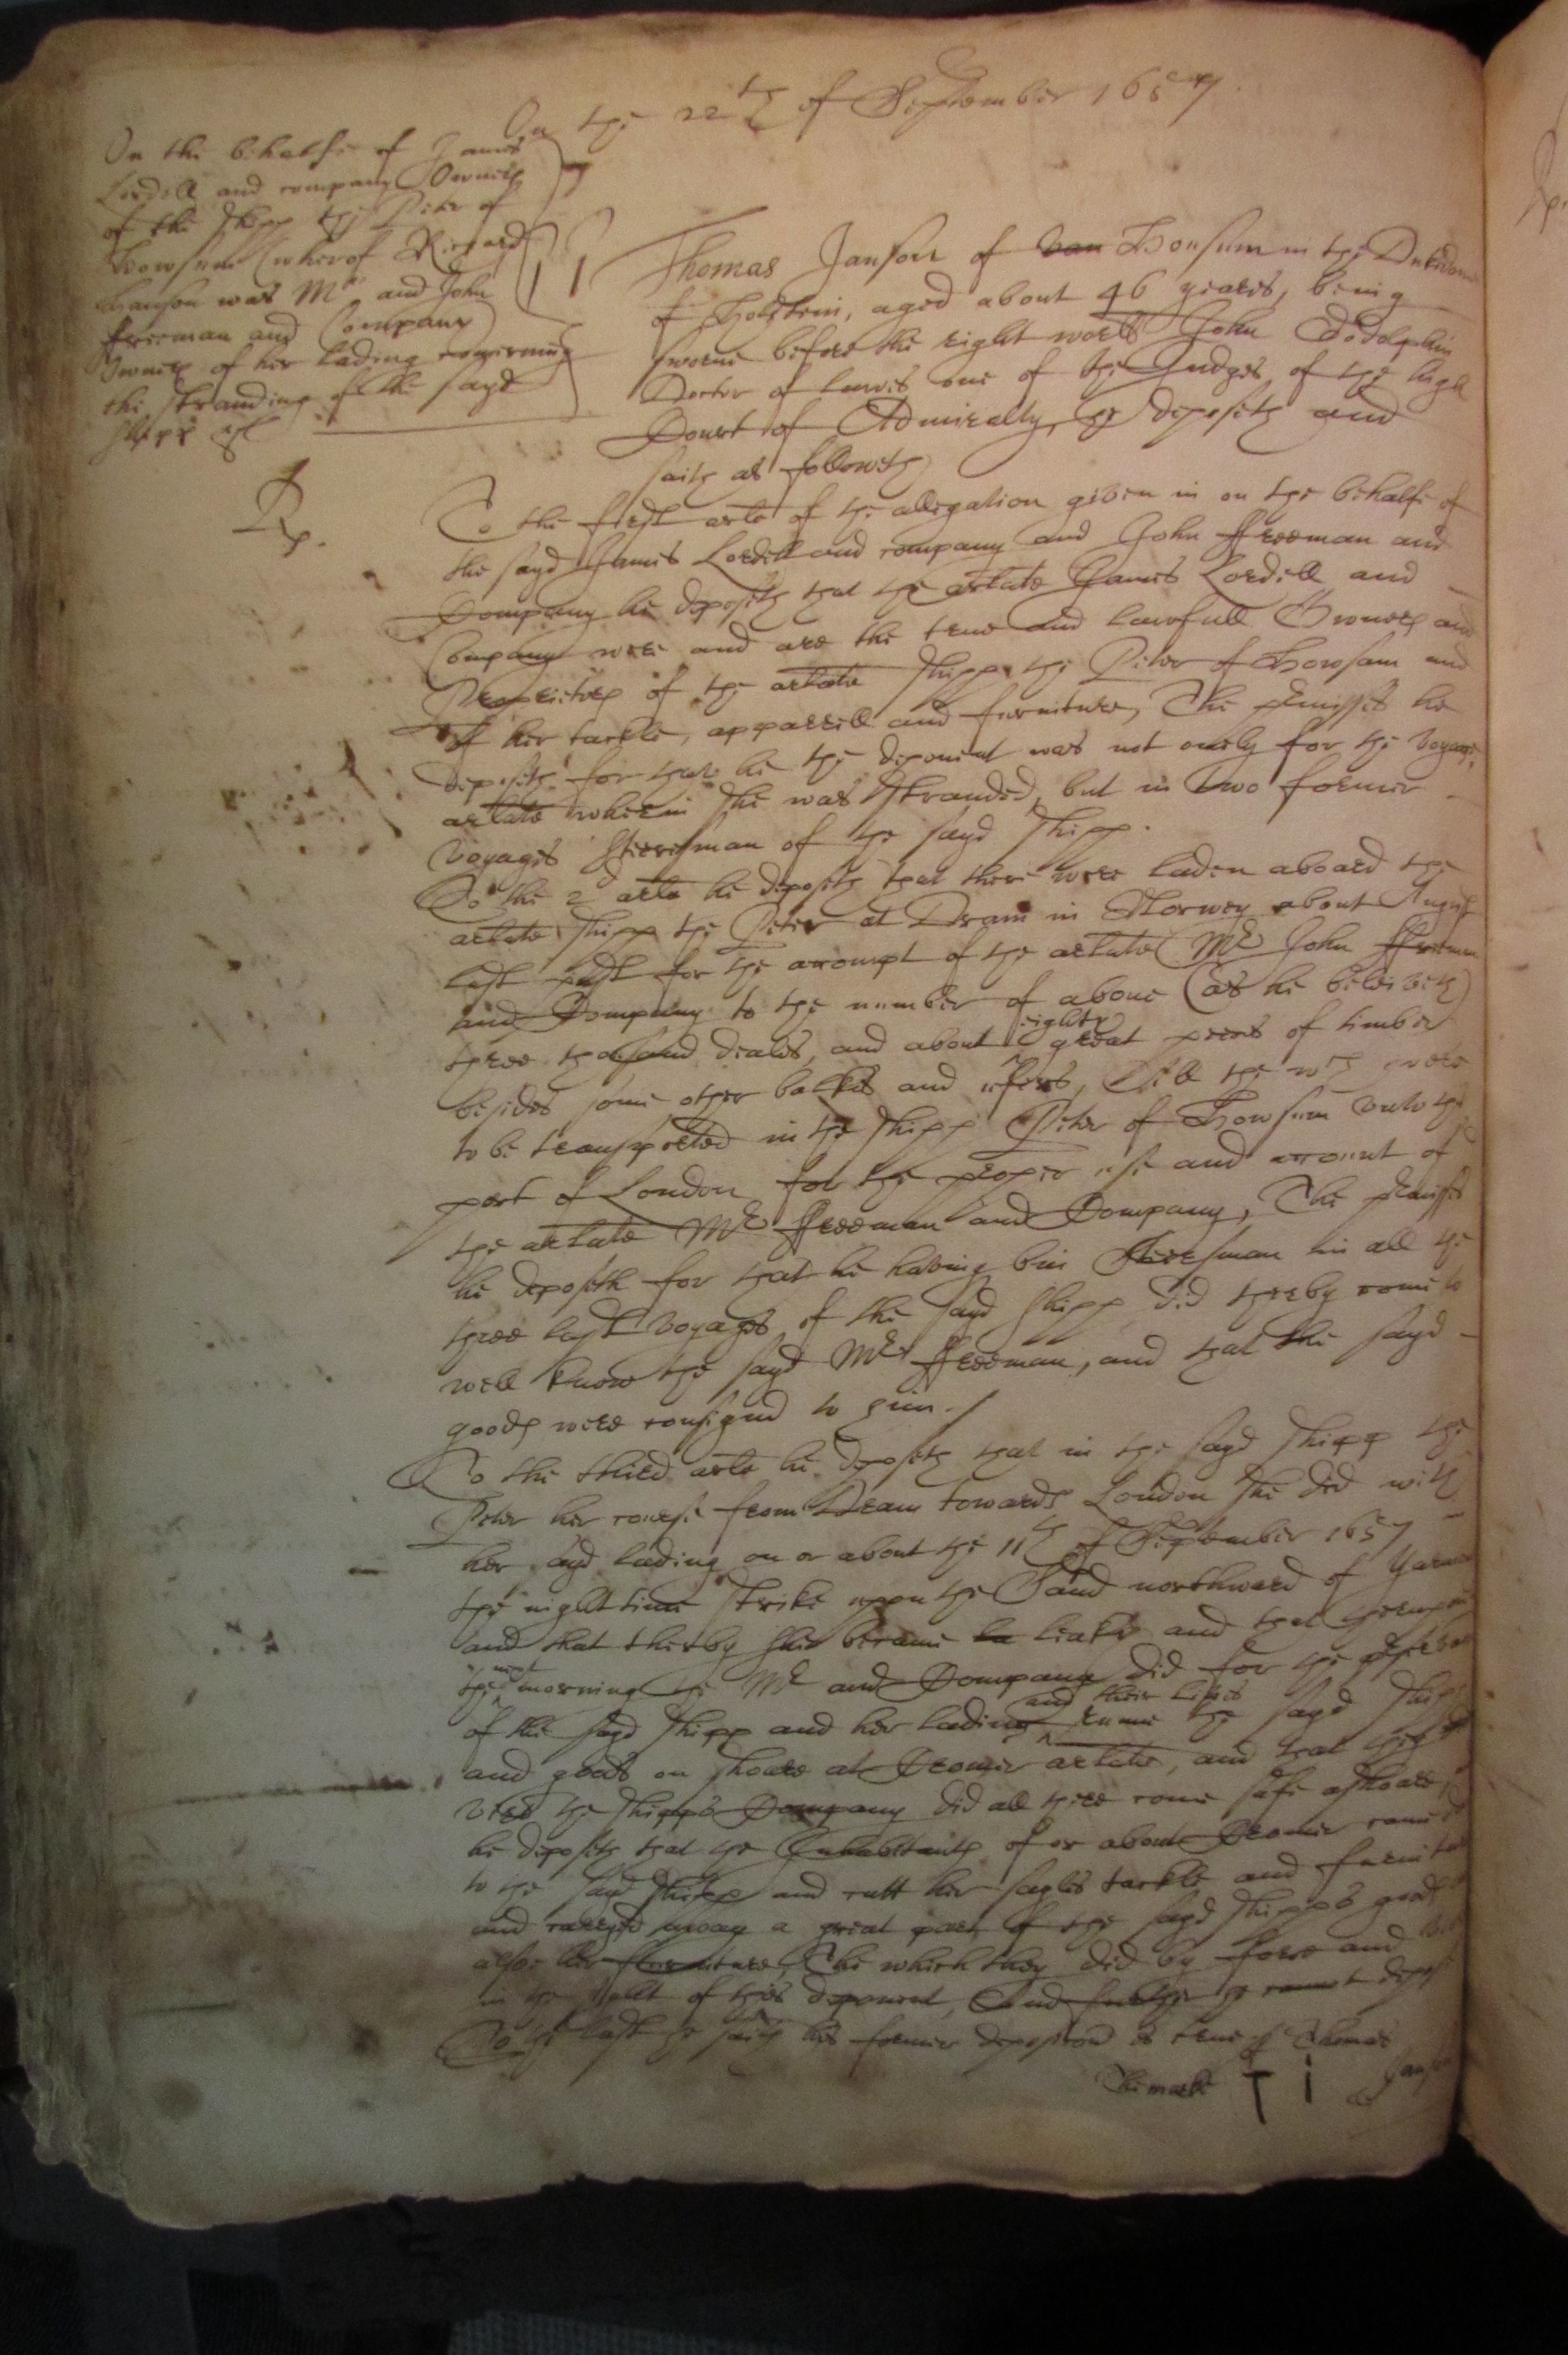 On the 22th of September 1657.
On the behalfe of James
Lordell and company Owners
of the shipp the Peter of
Howsum (wherof Richard
Hanson was Mr and John
Freeman and Company
Owners of her lading concerning
the stranding of the sayd
shipp &c
Thomas Janson of van Housum in the Dukedome
of Holstein, aged about 46 yeares, being
sworne before the right worll John Godolphin
Doctor of lawes one of the Judges of the high
Court of Admiralty, he deposeth and
saith as followeth
Rp.
To the first arte of the allegation given in on the behalfe of
the sayd James Lordell and company and John ffreeman and
Company he deposeth that the arlate James Lordell and
Company were and are the true and lawfull Owners and
Proprietors of the arlate shipp the Peter of Howsum and
of her tackle, apparrell and furniture, The premisses he
deposeth for that he the deponent was not onely for the voyage
arlate wherin she was stranded, but in two former
voyages steersman of the sayd shipp.
To the 2d arte he deposeth that there were laden aboard the
arlate shipp the Peter at Dram in Norwey about August
last past for the accompt of the arlate Mr John ffreeman
and Company to the number of above (as he beleiveth)
three thousand deales, and about eighty great peeces of timber
besides some other balkes and ufers, All the wch were
to be transported in the shipp Peter of Howsum unto the
port of London for the proper use and account of
the arlate Mr ffreeman and Company, The premisses
he deposeth for that he having bin steersman in all the
three last voyages of the sayd shipp did therby come to
well know the sayd Mr ffreeman, and that the sayd
goods were consigned to him./
To the third arte he deposeth that in the sayd shipp the
Peter her course from Dram towards London she did with
her sayd lading on or about the 11th of September 1657
the night time strike upon the Sand northward of
and that therby she became la leaky and that therupon
the next morning the Mr and Company did for the
of the sayd shipp and her lading and their lives runne the sayd shipp
and goods on shoare at Cromer arlate, and that
the shipps Company did all there come safe ashoare,
he deposeth that the Inhabitants of or about Cromer came
to the sayd shipp and cutt her sayles tackle and
and carryed away a great part of the sayd shipps goods
also her furniture, The which they did by force and
in the sight of this deponent, And further he cannot depose
To the last he saith his former deposition is true Thomas
The marke T i Janson